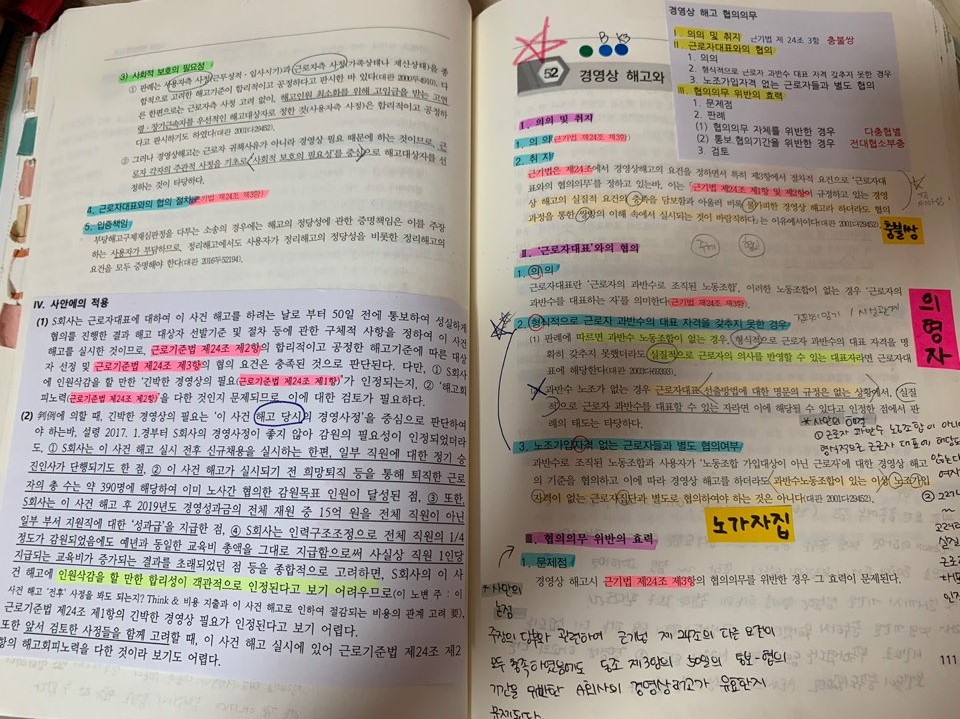 3) 사회적 보호의 필요성
① 판례는 사용자측 사정(근무성적·입사시기)과 근로자측 사정(가족상태나 재산상태)을 종
합적으로 고려한 기준이 합리적이고 공정하다고 판시한 바 있다(대판 2000두4910). 다
른 한편으로는 근로자측 사정 고려 없이, 해고인원 최소화를 위해 고임금을 받는 고연
령·장기근속자를 우선적인 해고대상자로 정한 것(사용자측 사정)은 합리적이고 공정하
다고 판시하기도 하였다(대판 2001다29452).
② 그러나 경영상해고는 근로자 귀책사유가 아니라 경영상 필요 때문에 하는 것이므로, 근
로자 각자의 주관적 사정을 기초로 '사회적 보호의 필요성'를 중심으로 해고대상자를 선
정하는 것이 타당하다.
4. 근로자대표와의 협의 절차(근기법 제24조 제3항)
5. 입증책임
부당해고구제재심판정을 다투는 소송의 경우에는 해고의 정당성에 관한 증명책임은 이를 주장
하는 사용자가 부담하므로, 정리해고에서도 사용자가 정리해고의 정당성을 비롯한 정리해고의
요건을 모두 증명해야 한다(대판 2016두52194).
IV. 사안에의 적용
(1) S회사는 근로자대표에 대하여 이 사건 해고를 하려는 날로 부터 50일 전에 통보하여 성실하게
협의를 진행한 결과 해고 대상자 선발기준 및 절차 등에 관한 구체적 사항을 정하여 이
해고를 실시한 것이므로, 근로기준법 제24조 제2항의 합리적이고 공정한 해고기준에 따른 대상
자 선정 및 근로기준법 제24조 제3항의 협의 요건은 충족된 것으로 판단된다. 다만, ① S회사
에 인원삭감을 할 만한 '긴박한 경영상의 필요(근로기준법 제24조 제1항)'가 인정되는지, ② '해고회
피노력(근로기준법 제24조 제2항)'을 다한 것인지 문제되므로, 이에 대한 검토가 필요하다.
(2) 判例에 의할 때, 긴박한 경영상의 필요는 '이 사건 해고 당시의 경영사정'을 중심으로 판단하여
야 하는바, 설령 2017. 1.경부터 S회사의 경영사정이 좋지 않아 감원의 필요성이 인정되었더라
도, ① S회사는 이 사건 해고 실시 전후 신규채용을 실시하는 한편, 일부 직원에 대한 정기 승
진인사가 단행되기도 한 점, ② 이 사건 해고가 실시되기 전 희망퇴직 등을 통해 퇴직한 근로
자의 총 수는 약 390명에 해당하여 이미 노사간 협의한 감원목표 인원이 달성된 점, ③ 또한,
S회사는 이 사건 해고 후 2019년도 경영성과급의 전체 재원 중 15억 원을 전체 직원이 아닌
일부 부서 지원직에 대한 '성과급'을 지급한 점, ④ S회사는 인력구조조정으로 전체 직원의 1/4
정도가 감원되었음에도 예년과 동일한 교육비 총액을 그대로 지급함으로써 사실상 직원 1인당
지급되는 교육비가 증가되는 결과를 초래되었던 점 등을 종합적으로 고려하면, S회사의 이 사
건 해고에 인원삭감을 할 만한 합리성이 객관적으로 인정된다고 보기 어려우므로(이 노변 주 : 이
사건 해고 '전후' 사정을 봐도 되는지? Think & 비용 지출과 이 사건 해고로 인하여 절감되는 비용의 관계 고려 要),
근로기준법 제24조 제1항의 긴박한 경영상 필요가 인정된다고 보기 어렵다.
또한 앞서 검토한 사정들을 함께 고려할 때, 이 사건 해고 실시에 있어 근로기준법 제24조 제2
항의 해고회피노력을 다한 것이라 보기도 어렵다.
52 경영상 해고와
경영상 해고 협의의무
I. 의의 및 취지 근기법 제 24조 3항 충불쌍
II. 근로자대표와의 협의
1. 의의
2. 형식적으로 근로자 과반수 대표 자격 갖추지 못한 경우
3. 노조가입자격 없는 근로자들과 별도 협의
III. 협의의무 위반의 효력
1. 문제점
2. 판례
(1) 협의의무 자체를 위반한 경우 다충협별
(2) 통보.협의기간을 위반한 경우 전대협소부충
3. 검토
I. 의의 및 취지
1. 의의(근기법 제24조 제3항)
2. 취지
근기법은 제24조에서 경영상해고의 요건을 정하면서 특히 제3항에서 절차적 요건으로 '근로자대
표와의 협의의무'를 정하고 있는바, 이는 '근기법 제24조 제1항 및 제2항이 규정하고 있는 경영
상 해고의 실질적 요건의 충족을 담보함과 아울러 비록 불가피한 경영상 해고라 하더라도 협의
과정을 통한 쌍방의 이해 속에서 실시되는 것이 바람직하다'는 이유에서이다(대판 2001다29452).
충불쌍
II. '근로자대표'와의 협의
1. 의의
근로자대표란 '근로자의 과반수로 조직된 노동조합', 이러한 노동조합이 없는 경우 '근로자의
과반수를 대표하는 자'를 의미한다(근기법 제24조 제3항).
의형자
2. 형식적으로 근로자 과반수의 대표 자격을 갖추지 못한 경우
(1) 판례에 따르면 과반수 노동조합이 없는 경우, 형식적으로 근로자 과반수의 대표 자격을 명
확히 갖추지 못했더라도 실질적으로 근로자의 의사를 반영할 수 있는 대표자라면 근로자대
표에 해당한다(대판 2001다69393).
과반수 노조가 없는 경우 근로자대표 선출방법에 대한 명문의 규정은 없는 상황에서, 실질
적으로 근로자 과반수를 대표할 수 있는 자라면 이에 해당될 수 있다고 인정한 점에서 판
례의 태도는 타당하다.
3. 노조가입자격 없는 근로자들과 별도 협의여부
과반수로 조직된 노동조합과 사용자가 '노동조합 가입대상이 아닌 근로자'에 대한 경영상 해고
의 기준을 협의하고 이에 따라 경영상 해고를 하더라도 과반수노동조합이 있는 이상 노조가입
자격이 없는 근로자 집단과 별도로 협의하여야 하는 것은 아니다(대판 2001다29452).
노가자집
III. 협의의무 위반의 효력
1. 문제점
경영상 해고시 근기법 제24조 제3항의 협의의무를 위반한 경우 그 효력이 문제된다.
*사안의
논점
111